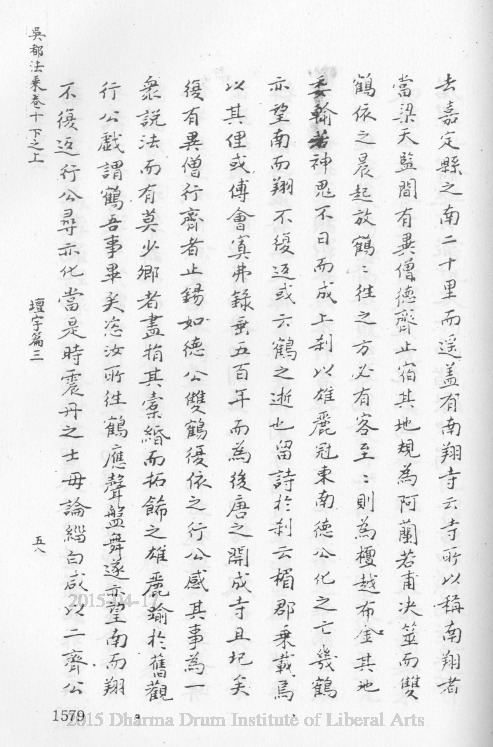 去嘉定縣之南二十里而遥盖有南翔寺云寺所以稱南翔者
當梁天監間有異僧德齊止宿其地規為阿蘭若甫决筮而雙
鶴依之晨起放鶴〻往之方必有客至〻則為檀越布金其地
委輸若神鬼不日而成上刹以雄麗冠東南德公化之亡幾鶴
亦望南而翔不復返或云鶴之逝也留詩於刹云楣郡乗載焉
以其俚或傅會寘弗錄垂五百年而為後唐之開成寺且圮矣
復有異僧行齊者止錫如德公雙鶴復依之行公感其事為一
衆説法而有莫少卿者盡捐其橐緡而拓飾之雄麗踰於舊觀
行公戲謂鶴吾事畢矣恣汝所往鶴應聲盤舞遂亦望南而翔
不復返行公尋亦化當是時震丹之士毋論緇白咸以二齊公
吳都法乗卷十下之上
壇宇篇三
五八
1579
2015-04-1
2015 Dharma Drum Institute of Liberal Arts